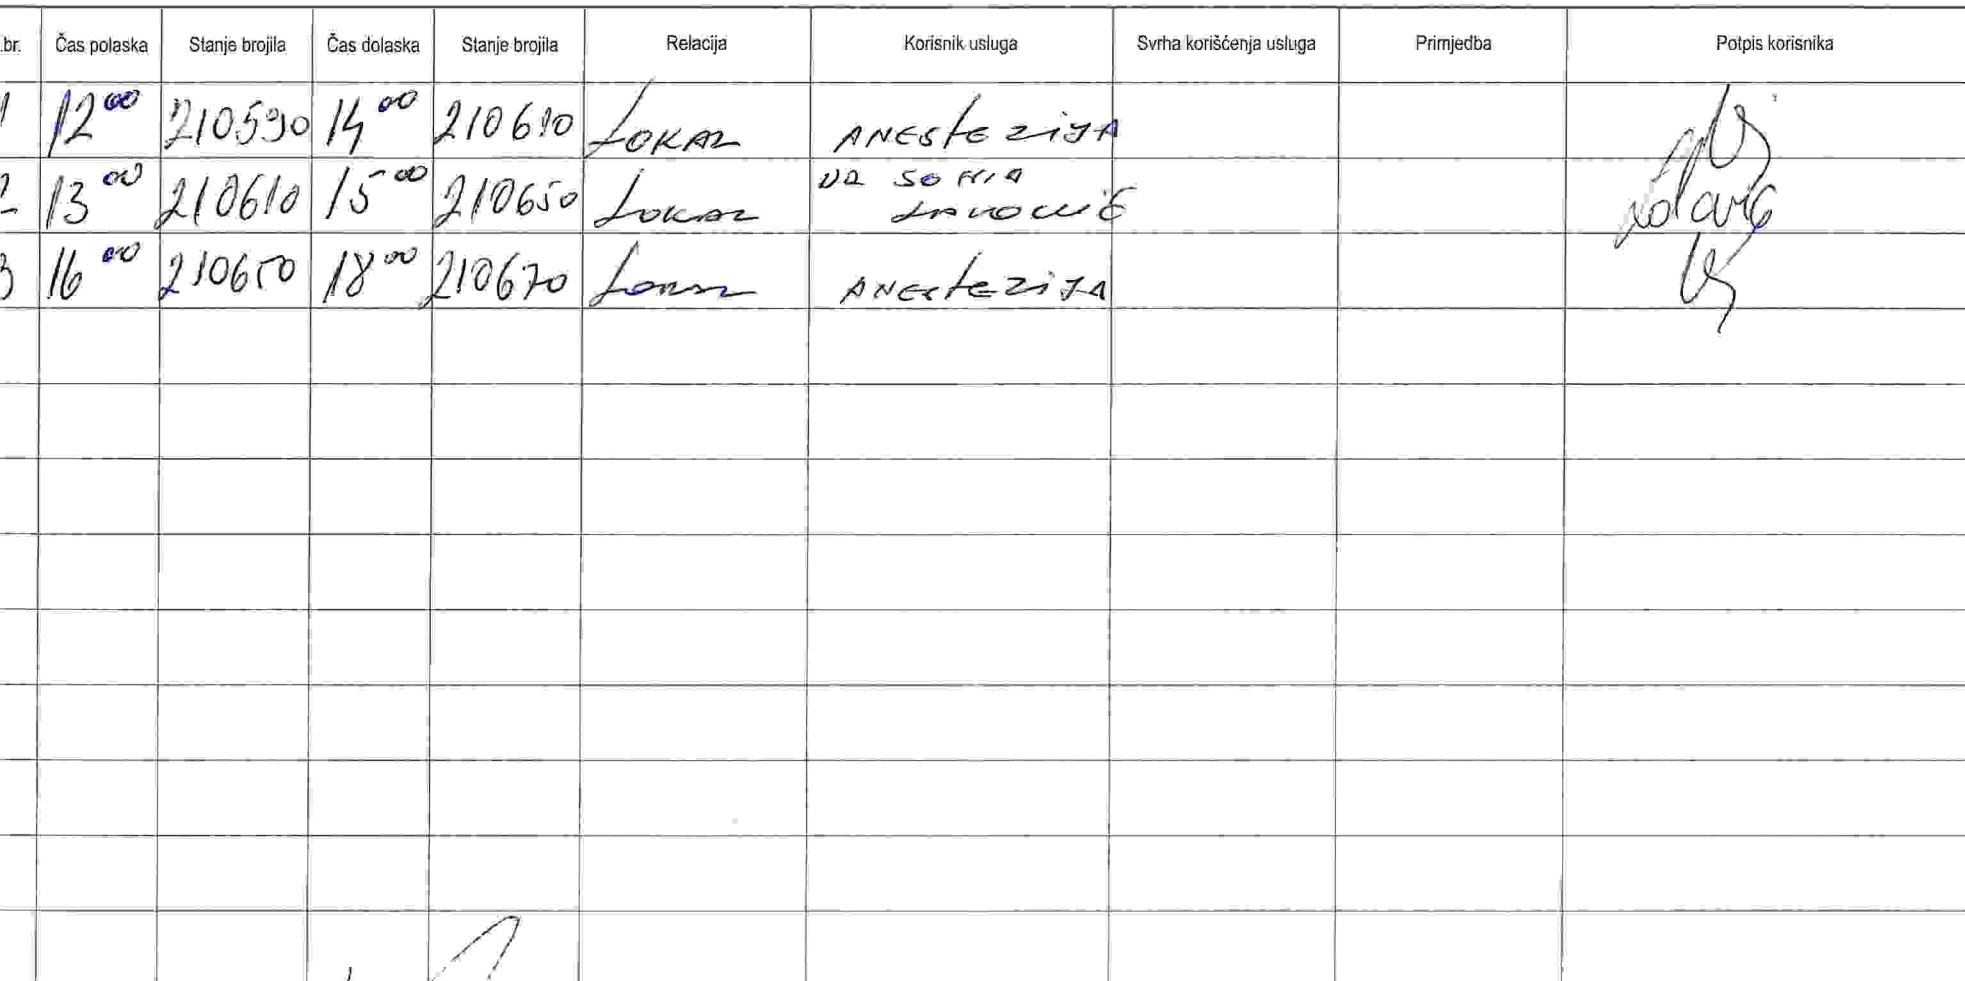 .br. Čas polaska Stanje brojila Čas dolaska Stanje brojila Relacija Korisnik usluga Svrha korišćenja usluga Primjedba Potpis korisnika
1 12 00 210590 14 00 210610 LOKAL ANESTEZIJA
2 13 00 210610 15 00 210650 LOKAL DR SONJA
3 16 00 210650 18 00 210670 LOKAL ANESTEZIJA